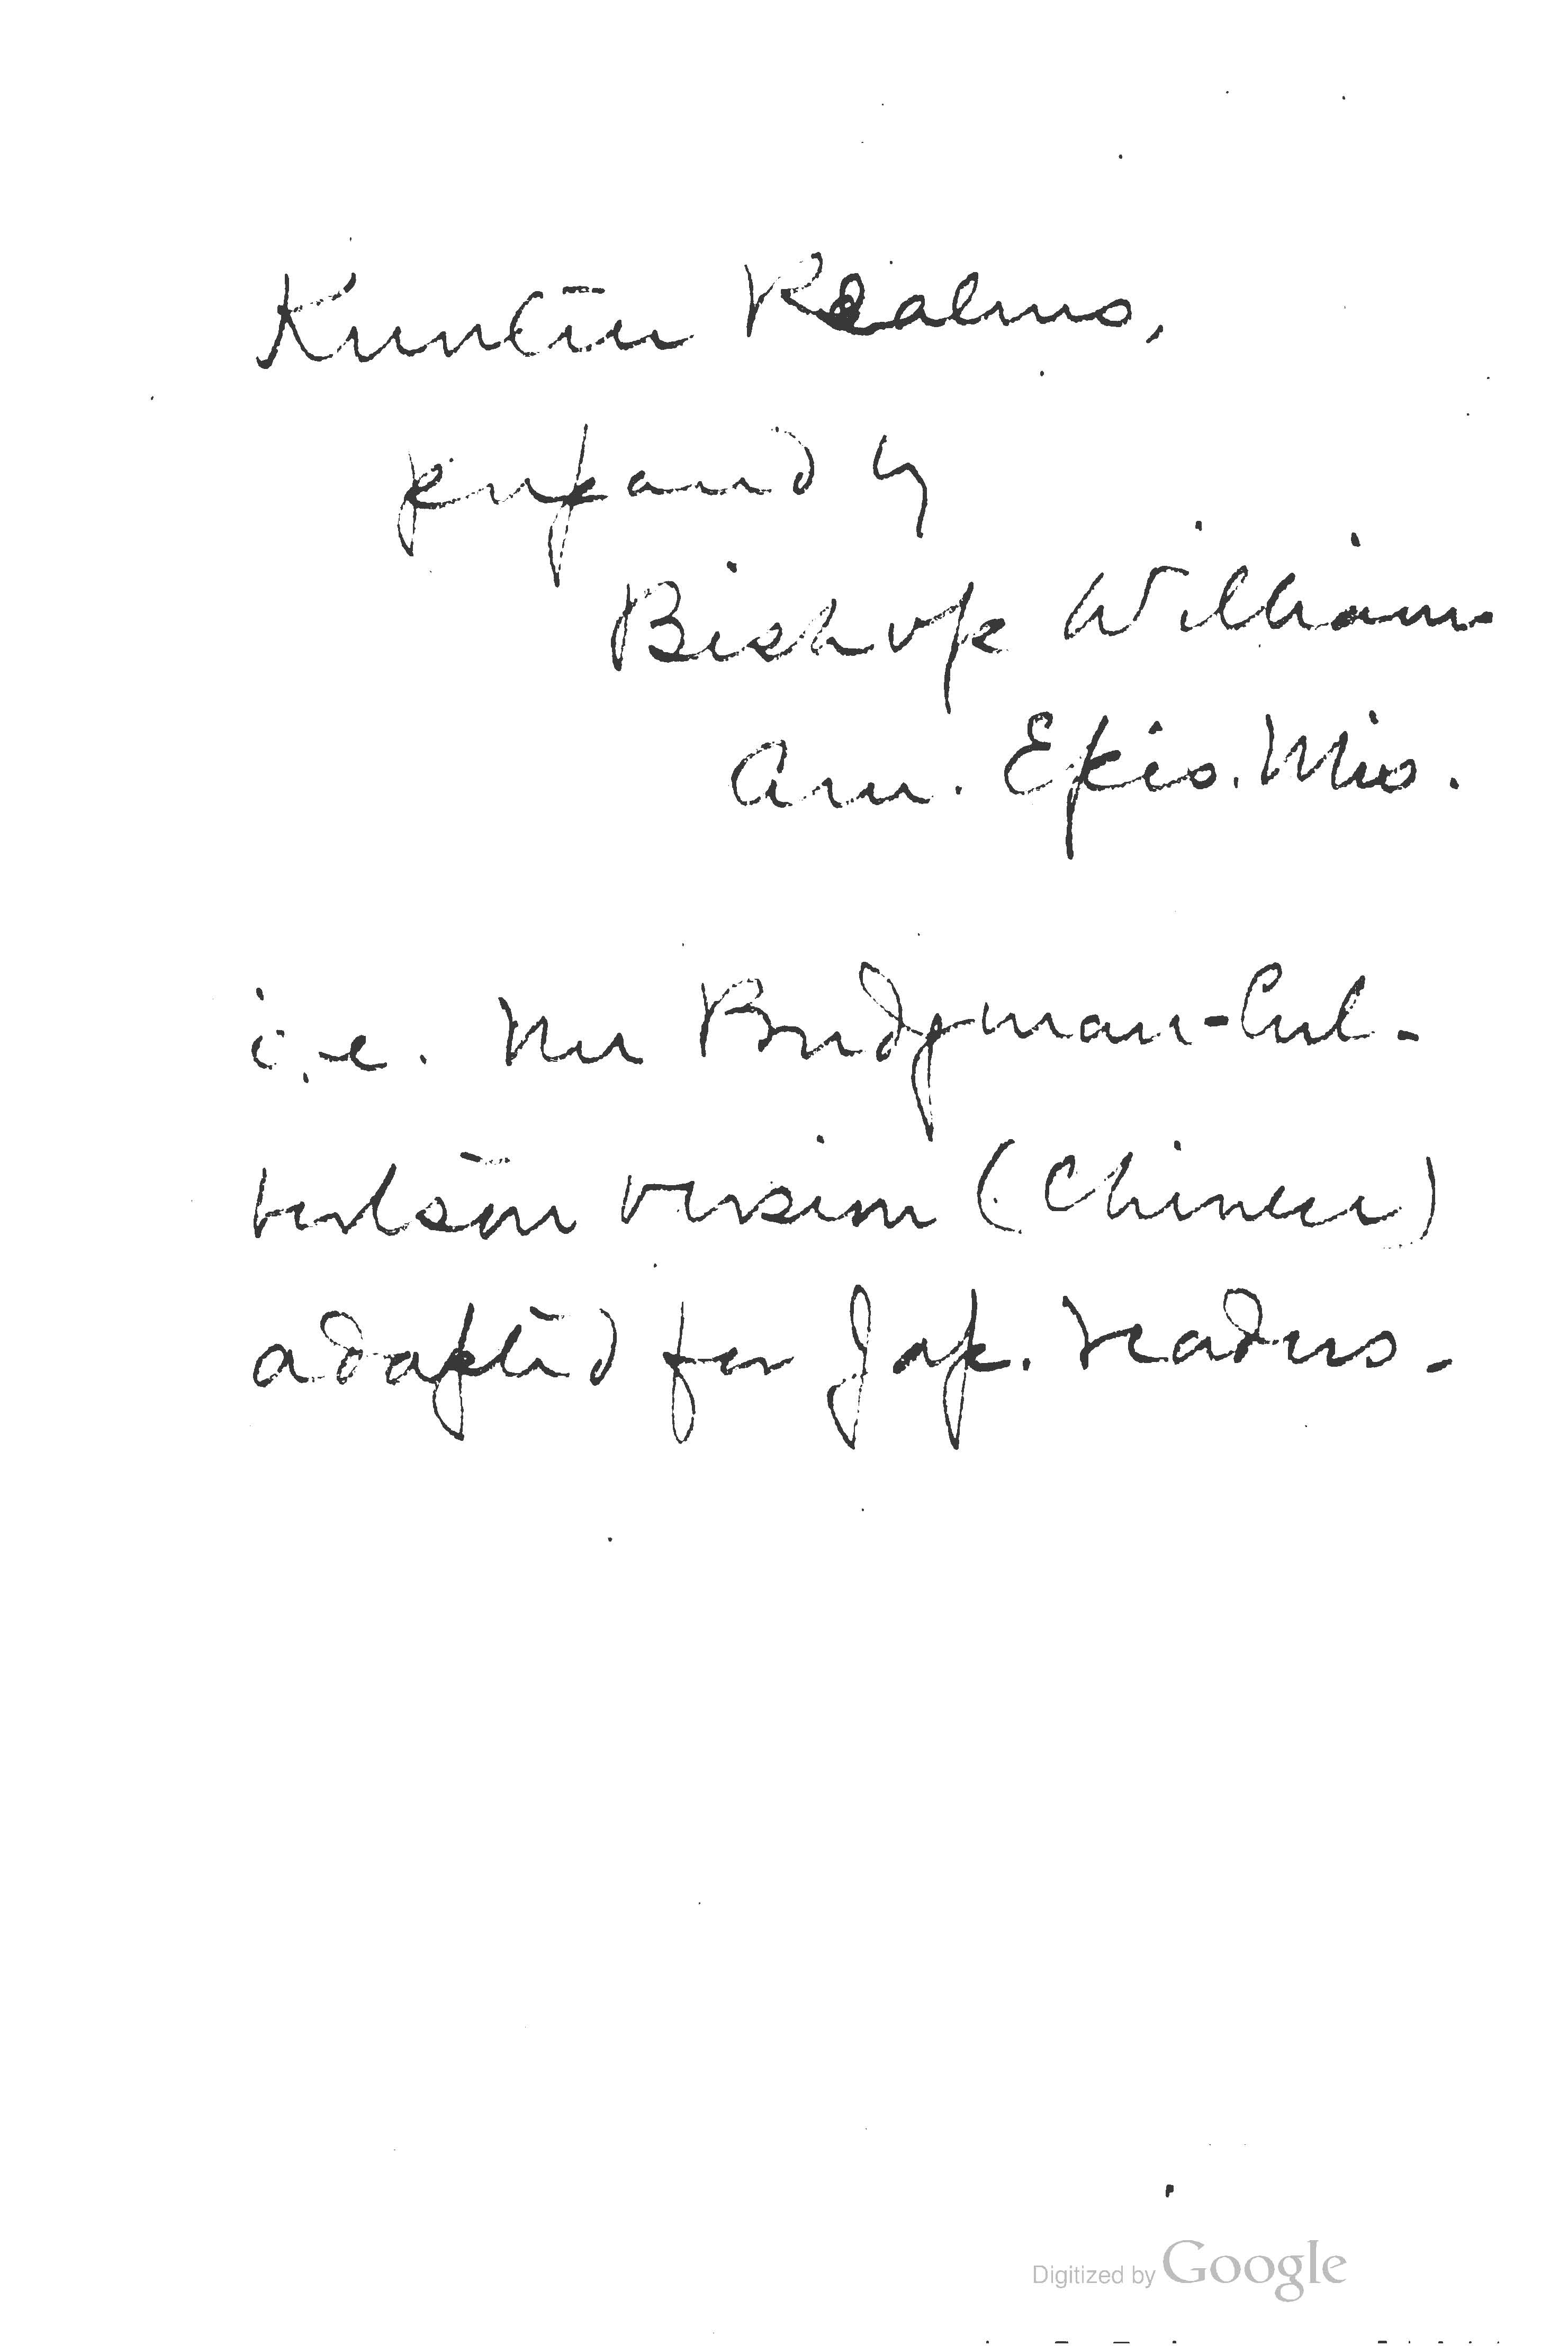 Kunten Psalms,
prepared by
Bishop Williams
Am. Epis. Mis.
i.e. the Bridgman-Cul-
bertson version (Chinese)
adapted for Jap. readers.
Digitized by Google